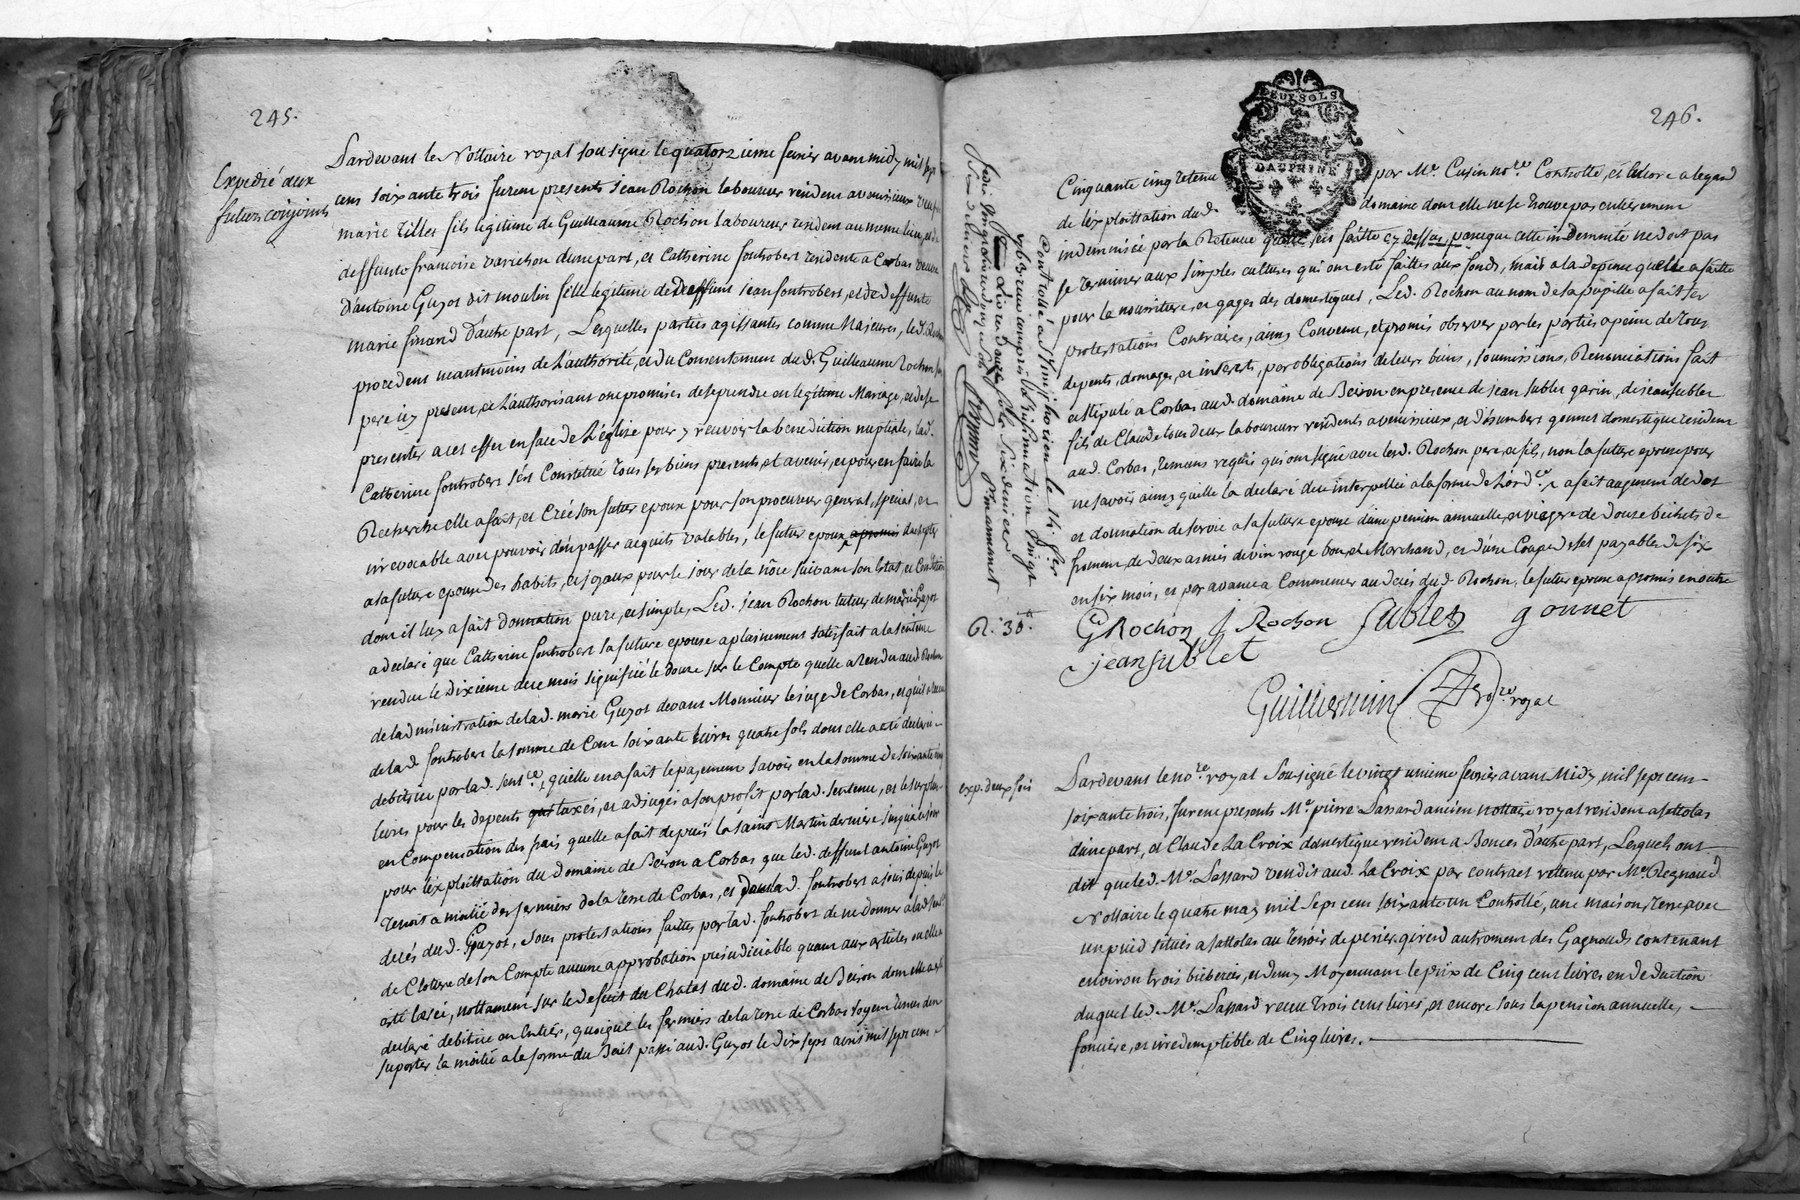 245.
Expedié aux
futurs conjoints
Pardevant le Nottaire royal sousigné le quatorzieme fevrier avant midy mil sept
cens soixante trois furent presents jean Rochon laboureur resident a venissieux veuf de
marie Tillet fils legitime de Guilleaume Rochon laboureur resident au meme lieu, et de
deffunte francoise varichon d'une part, et Catherine fontrobert residente a Corbas veuve
d'antoine Guyot dit moulin fille legitime de deffunt jean fontrobert, et de deffunte
marie finand d'autre part, Lesquelles parties agissantes comme Majeures, led. Rochon
procedent neantmoins de L'authorité, et du Consentement dud. Guilleaume Rochon son
pere icy present, et L'authorisant ont promis de se prendre en legitime Mariage, et de se
presenter a cet effet en face de L'église pour y recevoir la benediction nuptiale, lad.
Catherine fontrobert s'est Constitué tous ses biens presents, et avenir, et pour en faire la
Recherche elle a fait, et Créé son futur epoux pour son procureur general, special, et
irrevocable avec pouvoir d'en passer acquits valables, le futur epoux a promis
a la future epouse des habits, et joyaux pour le jour de la nôce suivant son Estat, et Condition
dont il luy a fait donnation pure, et simple, Led. jean Rochon tuteur de marie Guyot
a declaré que Catherine fontrobert sa future epouse a plainement satisfait a la sentence
rendue le dixieme de ce mois signifiée le douze sur le Compte quelle a rendu aud Rochon
de la d ministration de lad. marie Guyot devant Monsieur le juge de Corbas, et qu'il a receu
de lad fontrobert la somme de Cent soixante livres quatre sols dont elle a eté declarée
debitrice par lad. sent.ce, quelle en a fait le payement savoir en la somme de soixante cinq
livres pour les depents taxés, et adjugés a son profit par lad. sentence, et le surplus
en Compensation des frais quelle a fait depuis la saint Martin derniere jusqu'a ce jour
pour l'exploittation du domaine de Beiron a Corbas que led. deffunt antoine Guyot
tenoit a moitié des fermiers de la terre de Corbas, et dont lad. fontrobert a joui depuis le
decés dud. Guyot, sous protestations faittes par lad. fontrobert de ne donner a lad sent.ce
de Cloture de son Compte aucune approbation prejudiciable quant aux articles ou elle a
esté lesée, nottament sur le deficit du Chatal dud. domaine de Beiron dont elle a eté
declaré debitrice en Entier, quoique les fermiers de la terre de Corbas soyent tenus d'en
suporter la moitié a la forme du Bail passé aud. Guyot le dix sept avril mil sept cens
246.
DEUX SOLS
DAUPHINE
Cinquante cinq retenu par Me. Cusin no.re Controllé, et Encore a legard
de l'exploittation dud. domaine dont elle ne se trouve pas entierement
indemnisée par la Retenue quelle s'est faitte cy dessus, parceque cette indemnité ne doit pas
se terminer aux simples cultures qui ont esté faittes aux fonds, mais a la depense quelle a faitte
pour la nourriture, et gages des domestiques, Led. Rochon au nom de sa pupille a fait ses
protestations Contraires, ainsy Convenu, et promis observer par les parties a peine de tous
depents, domages, et interets, par obligations de leurs biens, soumissions, Renonciations fait
et stipulé a Corbas aud. domaine de Beiron en presence de jean sublet garin, de jean sublet
fils de Claude tous deux laboureurs residents a venissieux, et d'humbert gonnet domestique resident
aud. Corbas, temoins requis qui ont signé avec lesd. Rochon pere, et fils, non la future epouse pour
ne savoir ainsy quelle la declaré de ce interpellée a la forme de L'ord.ce a fait augment de dot
et donnation de survie a la future epouse d'une pension annuelle, et viagere de douze bichets de
froment de deux asnées de vin rouge bon, et Marchand, et d'une Coupe de sel payables de six
en six mois, et par avance a Commencer au deces dud Rochon, le futur epoux a promis en outre
Controllé a St Simphorien le 14. fer
1763. reçu compris L'insinuation vingt
R. 30s.
G Rochon J Rochon Sublet gonnet
jean sublet
Guilliermin no.re royal
exp. deux fois
Pardevant le no.re royal Sousigné le vingt unieme fevrier avant Midy, mil sept cens
soixante trois, furent presents Me. pierre Lassard ancien nottaire royal resident a sattolas
d'une part, et Claude La Croix domestique resident a Bonces d'autre part, Lesquels ont
dit que led. Me. Lassard vendit aud. La Croix par contract retenu par Me. Regnaud
Nottaire le quatre may mil sept cens soixante un Controllé, une maison, terre avec
un puid situés a sattolas au terroir de perier, qui est autrement des Gagnouds contenant
environ trois bicherées, et demy Moyennant le prix de Cinq cens livres en deduction
duquel led. Me. Lassard receu trois cens livres, et encore sous la pension annuelle,
fonciere, et irredemptible de Cinq livres.